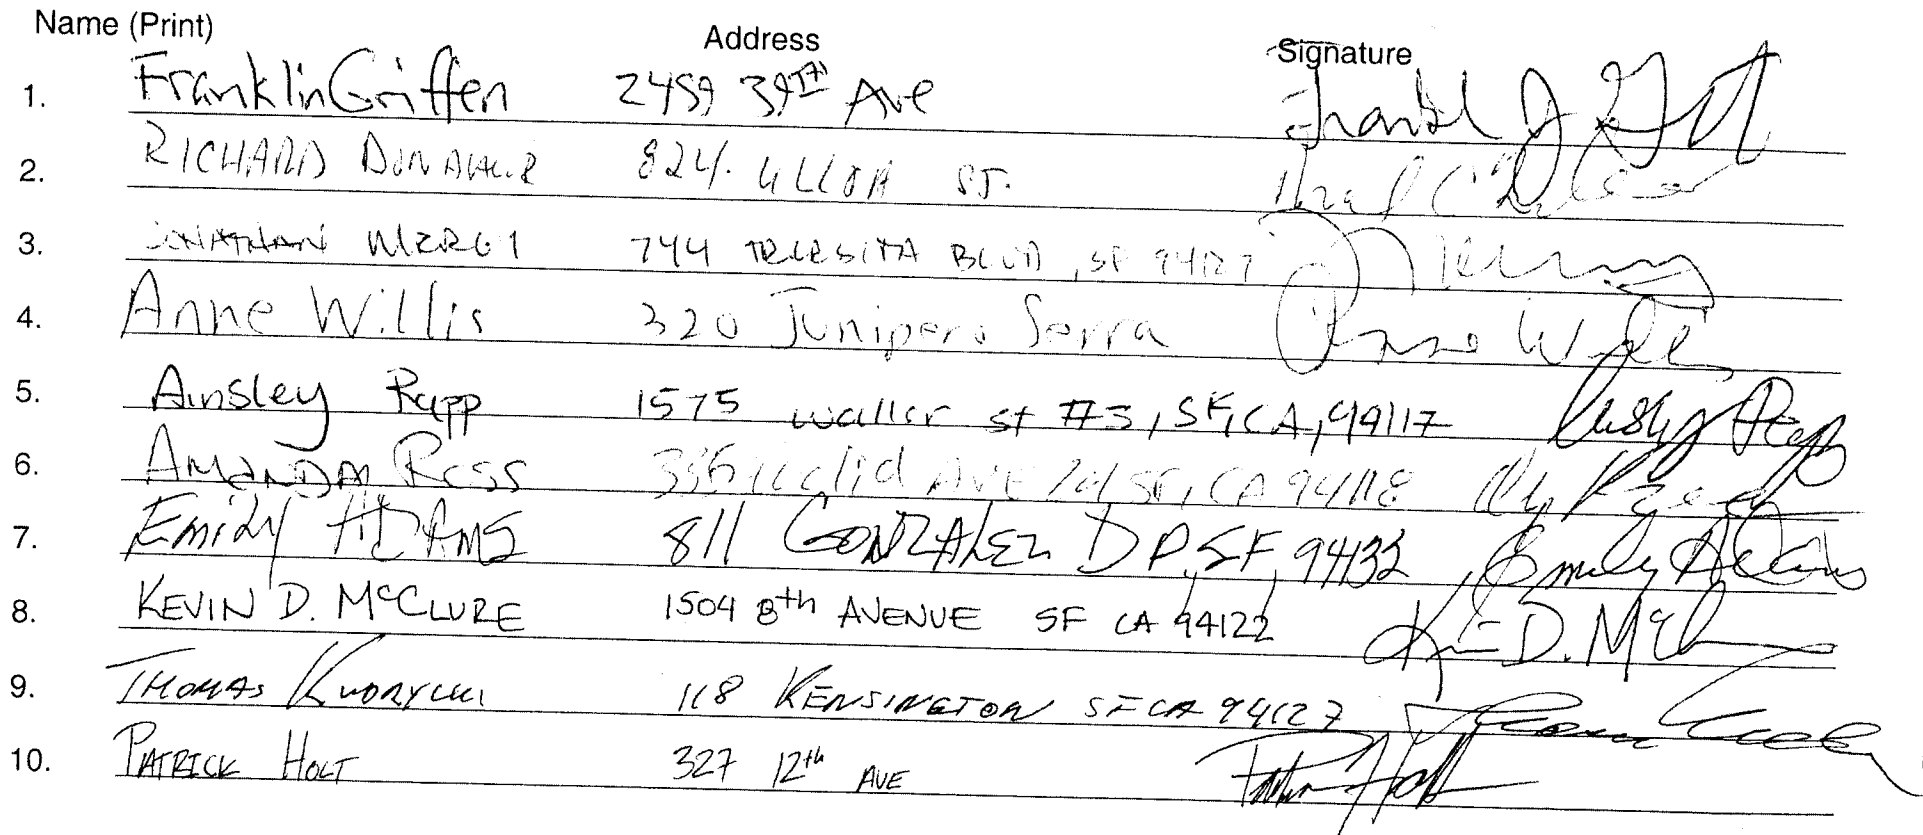 Name (Print) Address Signature
1. Franklin Griffen 2459 39TH Ave
2. RICHARD DONAHUE 824 ULLOA ST.
3. JONATHAN 744 TERESITA BLVD, SF 94127
4. Anne Willis 320 Junipero Serra Anne Willis
5. Ainsley Rapp 1575 Waller st #3, SF, CA, 94117
6. AMANDA ROSS Euclid AVE SF, CA 94118
7. Emily ADAMS 811 GONZALEZ DR, SF, 94132 Emily Adams
8. KEVIN D. McCLURE 1504 8th AVENUE SF CA 94122
9. THOMAS 118 KENSINGTON SF CA 94127
10. PATRICK HOLT 327 12th AVE